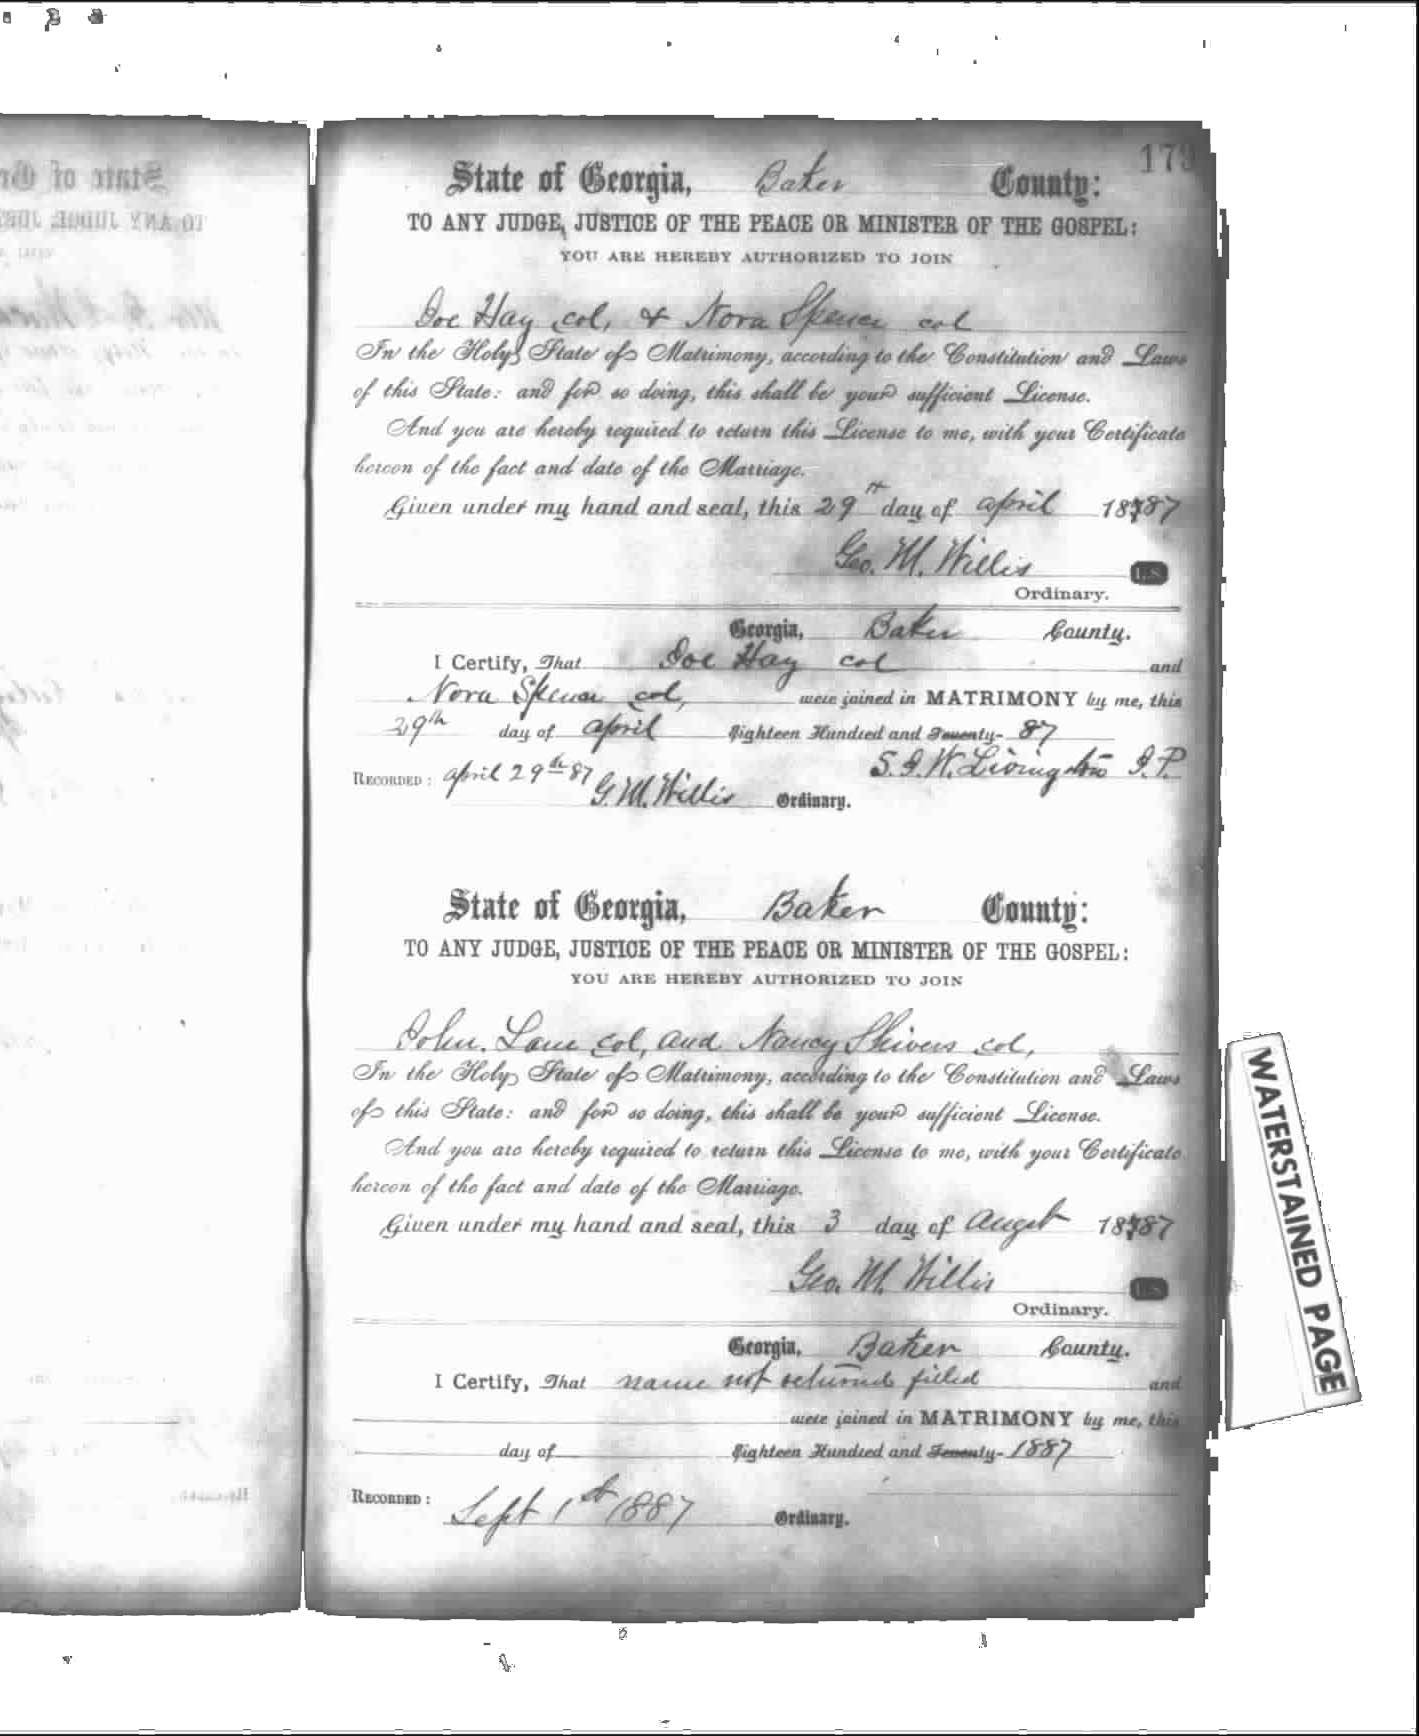 179
State of Georgia, Baker County:
TO ANY JUDGE, JUSTICE OF THE PEACE OR MINISTER OF THE GOSPEL:
YOU ARE HEREBY AUTHORIZED TO JOIN
Joe Hay col, & Nora Spencer col
In the Holy State of Matrimony, according to the Constitution and Laws
of this State: and for so doing, this shall be your sufficient License.
And you are hereby required to return this License to me, with your Certificate
hereon of the fact and date of the Marriage.
Given under my hand and seal, this 29th day of april 18787
Geo. M. Willis L.S.
Ordinary.
Georgia, Baker County.
I Certify, That Joe Hay col and
Nora Spencer col, were joined in MATRIMONY by me, this
29th day of april Eighteen Hundred and Seventy- 87
S. J. W. Livingston J.P.
RECORDED: april 29th 87
G. M. Willis Ordinary.
State of Georgia, Baker County:
TO ANY JUDGE, JUSTICE OF THE PEACE OR MINISTER OF THE GOSPEL:
YOU ARE HEREBY AUTHORIZED TO JOIN
John. Lane col, and Nancy Shivers col,
In the Holy State of Matrimony, according to the Constitution and Laws
of this State: and for so doing, this shall be your sufficient License.
And you are hereby required to return this License to me, with your Certificate
hereon of the fact and date of the Marriage.
Given under my hand and seal, this 3 day of Augst 18787
Geo. M. Willis L.S.
Ordinary.
Georgia, Baker County.
I Certify, That name not returned filled and
were joined in MATRIMONY by me, this
day of Eighteen Hundred and Seventy- 1887
RECORDED: Sept 1st 1887 Ordinary.
WATERSTAINED PAGE